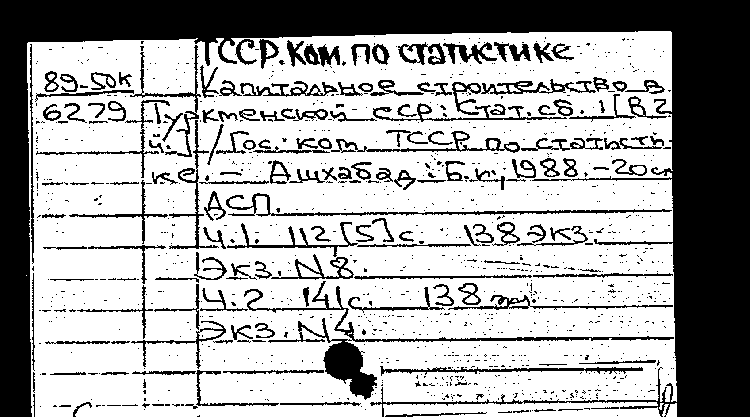 ТССР. Ком. по статистике
89-50к Капитальное строительство в
6279 Туркменской ССР: Стат. сб. / [В 2
ч.] / Гос. ком. ТССР по статисти-
ке. – Ашхабад: Б.и., 1988. – 20 см
ДСП.
Ч.1. 112 [5] с. 138 экз.
Экз. N 8.
Ч.2 141 с. 138 экз.
Экз. N 4.